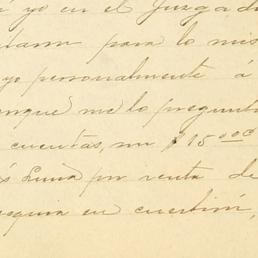 yo en el Juzgad
para lo mis
yo personalmente á
me lo pregunt
cuentas, mi $15000
Luna por venta de
en cuestión,